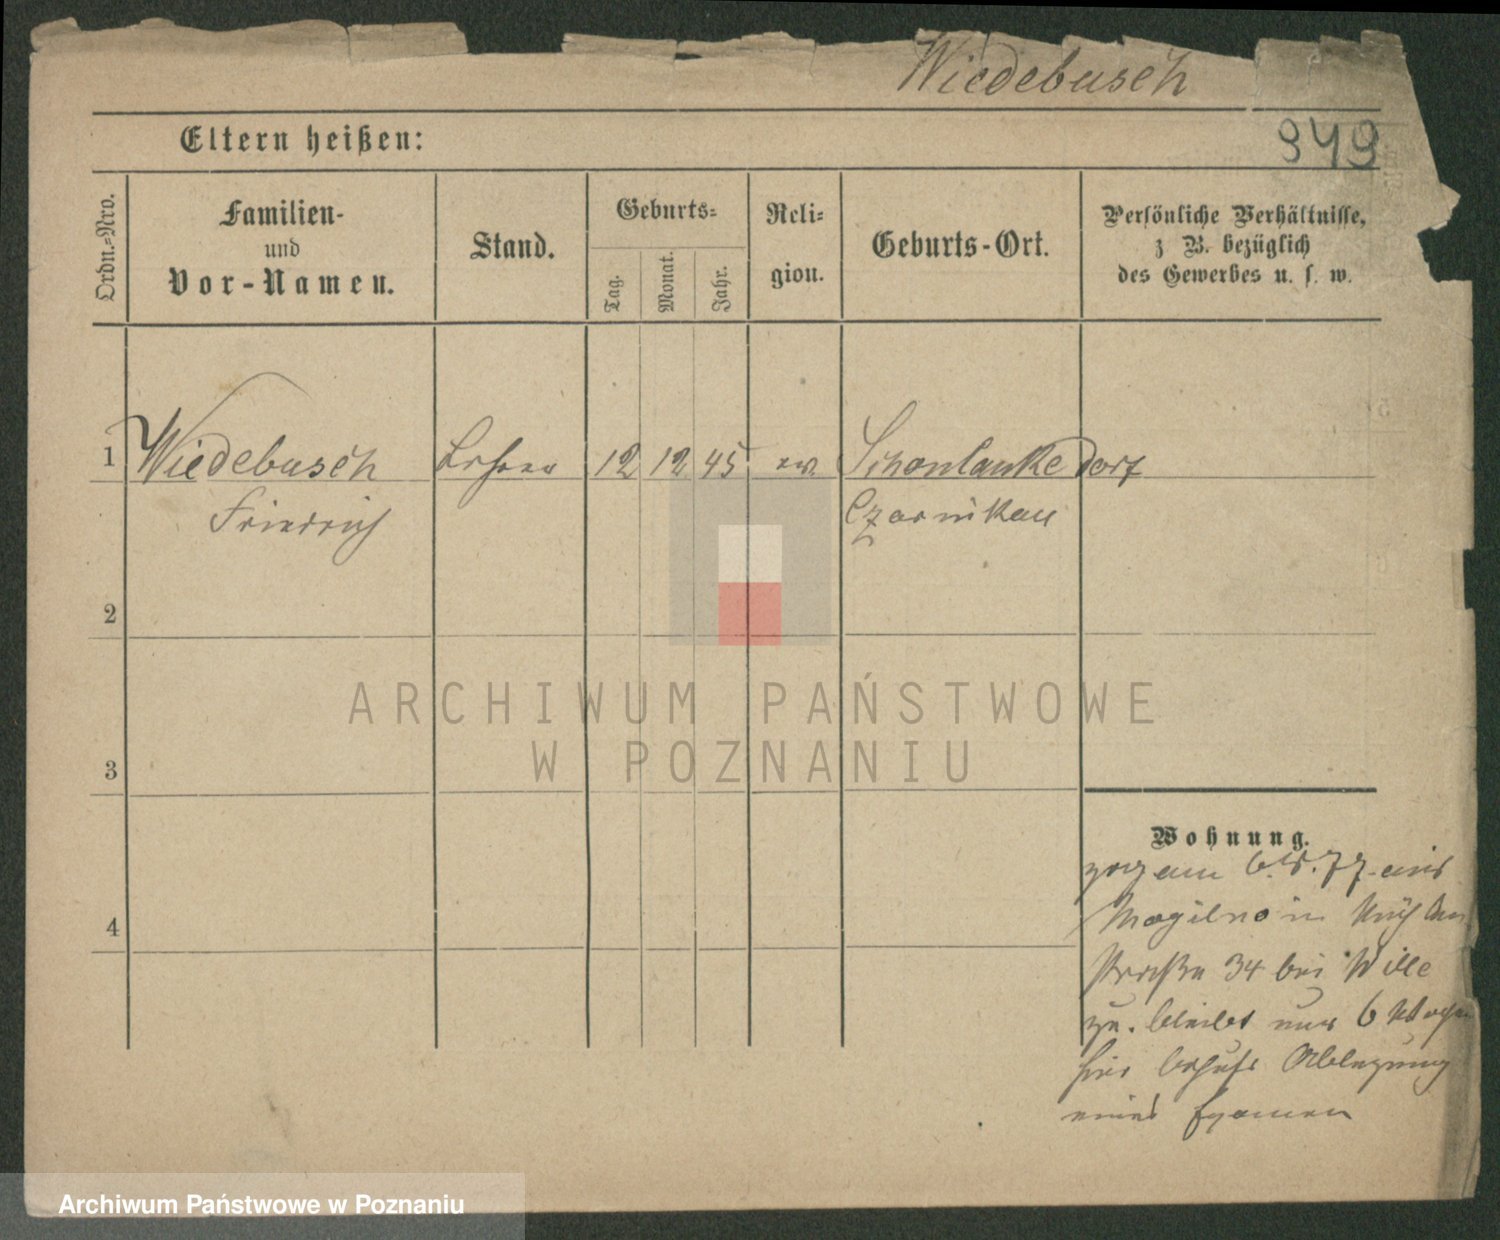 Wiedebusch
949
Eltern heißen:
Ordn.-Nro.
Familien-
und
Vor-Namen.
Stand.
Geburts-
Tag.
Monat.
Jahr.
Reli-
gion.
Geburts-Ort.
Persönliche Verhältnisse,
z. B. bezüglich
des Gewerbes u. s. w.
1 Wiedebusch Lehrer 12 12 45 ev. Schonlanke Dorf
Friedrich Czarnikau
2
3
4
Wohnung.
zog am 6. 77 aus
Mogilno in
Straße 34 bei Wille
zu. bleibt nur 6 Wochen
hier behufs Ablegung
eines Examen
ARCHIWUM PAŃSTWOWE
W POZNANIU
Archiwum Państwowe w Poznaniu